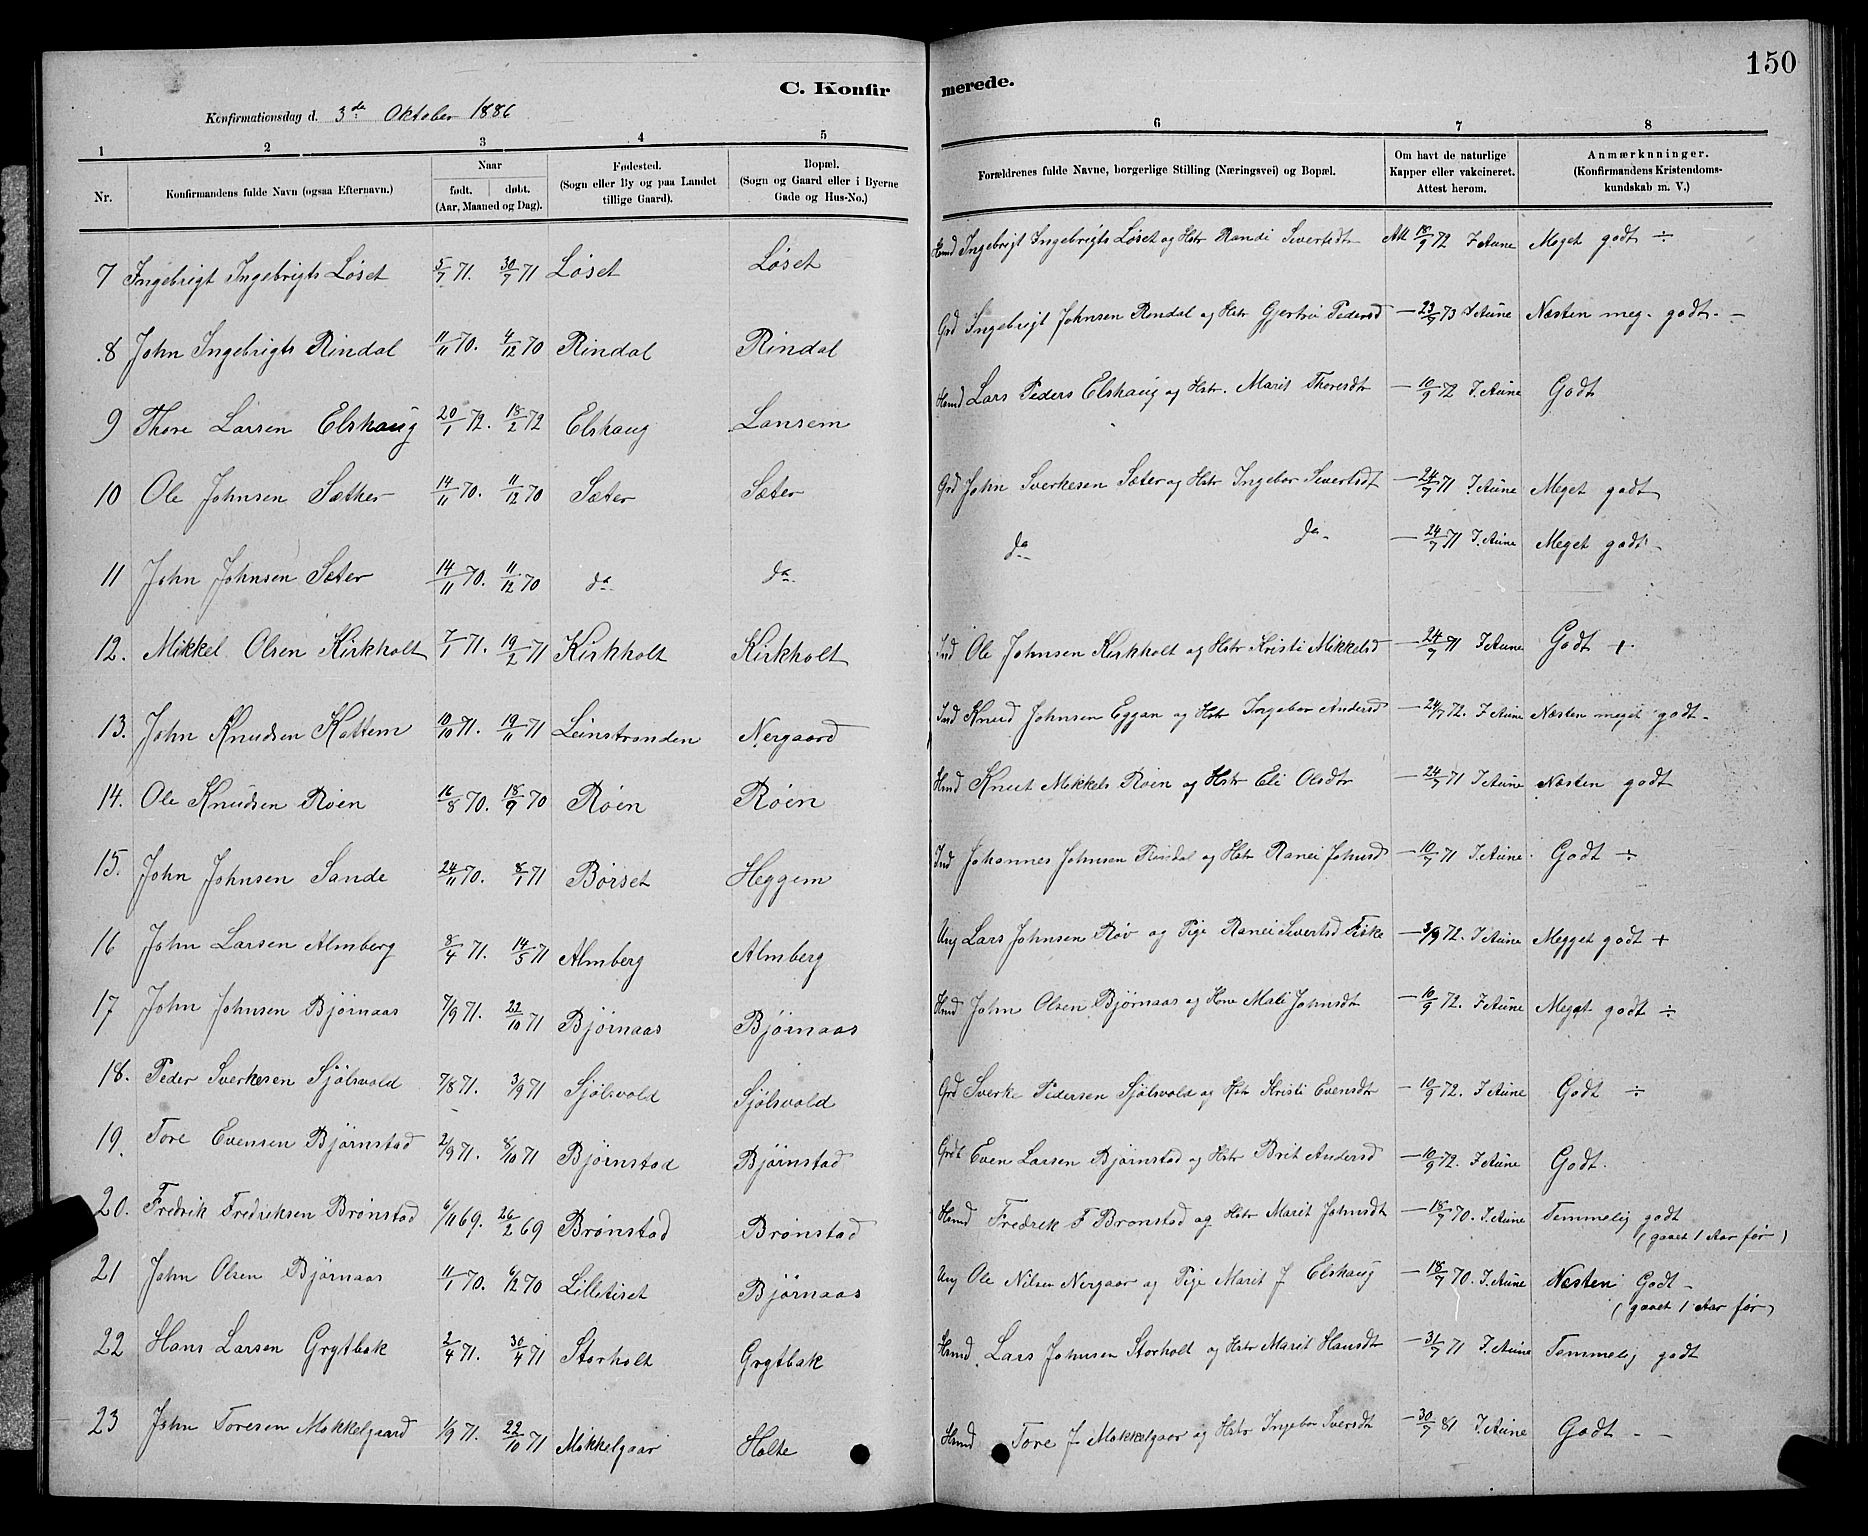 150
C. Konfirmerede.
Konfirmationsdag d. 3de Oktober 1886
1 2 3 4 5 6 7 8
Nr. Konfirmandens fulde Navn (ogsaa Efternavn.) Naar født. døbt. (Aar, Maaned og Dag). Fødested. (Sogn eller By og paa Landet tillige Gaard). Bopæl. (Sogn og Gaard eller i Byerne Gade og Hus-No.) Forældrenes fulde Navne, borgerlige Stilling (Næringsvei) og Bopæl. Om havt de naturlige Kapper eller vakcineret. Attest herom. Anmærknninger. (Konfirmandens Kristendomskundskab m. V.)
7 Ingebrigt Ingebrigts Løset 5/7 71. 30/7 71 Løset Løset Hmd Ingebrigt Ingebrigts Løset og Hstr Randi Sivertsdtr Att 18/9 72 I Aune Meget godt ÷
8 John Ingebrigts Rindal 11/11 70. 4/12 70 Rindal Rindal Grd Ingebrigt Johnsen Rindal og Hstr Gjertru Pedersd — 23/9 73 I Aune Næsten meg. godt. -
9 Thore Larsen Elshaug 20/1 72. 18/2 72 Elshaug Lansem Hmd Lars Peders Elshaug og Hstr. Marit Thoresdtr — 10/9 72 I. Aune Godt
10 Ole Johnsen Sæther 14/11 70. 11/12 70 Sæter Sæter Grd John Sverkesen Sæter og Hstr Ingebor Sivertsdt — 24/7 71 I Aune Meget godt
11 John Johnsen Sæter 14/11 70. 11/12 70 do do do do — 24/7 71 I. Aune Meget godt -
12. Mikkel Olsen Kirkholt 7/1 71. 19/2 71 Kirkholt Kirkholt Ind Ole Johnsen Kirkholt og Hstr Kristi Mikkelsd — 24/7 71 I Aune Godt +
13. John Knudsen Kattem 10/10 71. 19/11 71 Leinstranden Nergaard Ind Knud Johnsen Eggan og Hstr Ingebor Andersd — 24/7 72. I Aune Næsten meget godt -
14. Ole Knudsen Røen 16/8 70. 18/9 70 Røen Røen Hmd Knut Mikkels Røen og Hstr Eli Olsdtr — 24/7 71 I Aune Næsten godt
15. John Johnsen Sande 24/11 70. 8/1 71 Børset Heggem Ind Johannes Johnsen Rindal og Hstr Ranei Johnsd — 10/7 71 I. Aune. Godt ÷
16 John Larsen Almberg 8/4 71. 14/5 71 Almberg Almberg Ung Lars Johnsen Røv og Pige Ranei Sivertsd Fiske — 3/9 72. I Aune Megget godt +
17 John Johnsen Bjørnaas 7/9 71. 22/10 71 Bjørnaas Bjørnaas Hmd John Olsen Bjørnaas og Kone Mali Johnsdt — 10/9 72. I Aune Meget godt ÷
18. Peder Sverkesen Sjølsvold 7/8 71. 3/9 71 Sjølsvold Sjølsvold Grd Sverke Pedersen Sjølsvold og Hstr Kristi Evensdtr — 10/9 72. I Aune Godt ÷
19. Tore Evensen Bjørnstad 2/9 71. 8/10 71 Bjørnstad Bjørnstad Grdt Even Larsen Bjørnstad og Hstr Brit Andersd — 10/9 72. I Aune Godt.
20. Fredrik Fredriksen Brønstad 6/11 69. 26/2 69 Brønstad Brønstad Hmd Fredrik F Brønstad og Hstr Marit Johnsdt — 18/7 70. I. Aune Temmelig godt
(gaaet 1 Aar før)
21 John Olsen Bjørnaas 11/1 70. 6/2 70 Lilletiset Bjørnaas Ung Ole Nilsen Nergaar og Pige Marit J Elshaug — 18/7 70. I. Aune Næsten Godt -
(gaaet 1 Aar før)
22 Hans Larsen Grytbak 2/4 71. 30/4 71 Storholt Grytbak Hmd. Lars Johnsen Storholt og Hstr Marit Hansdtr — 31/7 71 I. Aune Temmelig godt
23 John Toresen Mokkelgaard 1/9 71. 22/10 71 Mokkelgaar Holte Hmd Tore J Mokkelgaar og Hstr Ingebor Siversdt — 30/7 81 I. Aune Godt - -